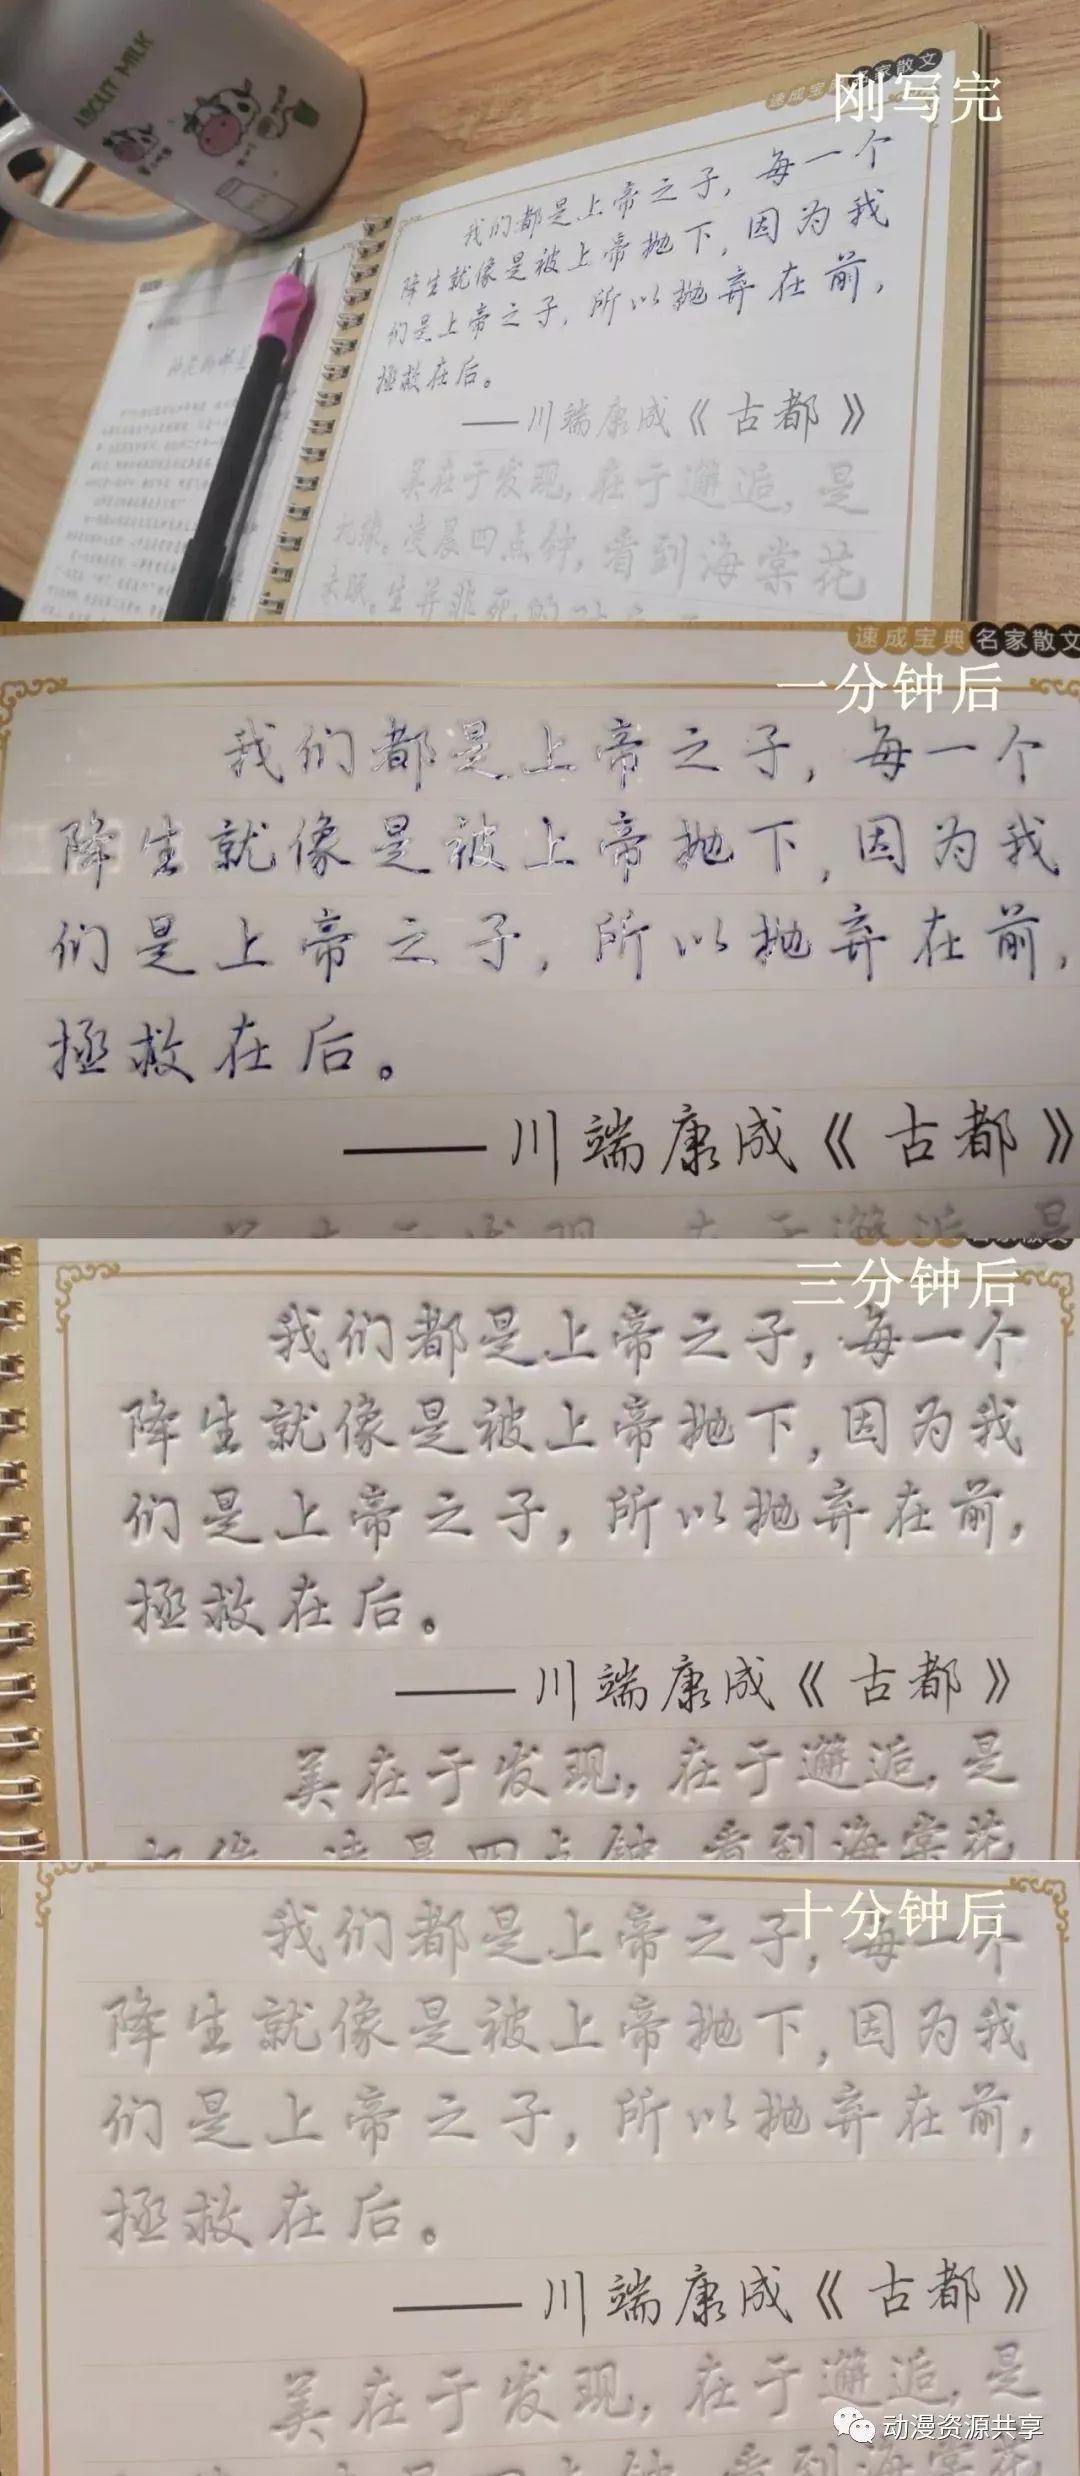 ABOUT MILK
速成宝典名家散文
刚写完
我们都是上帝之子，每一个
降生就像是被上帝抛下，因为我
们是上帝之子，所以抛弃在前，
拯救在后。
——川端康成《古都》
美在于发现，在于邂逅，是
机缘。凌晨四点钟，看到海棠花
未眠。生并非死的对立
速成宝典名家散文
一分钟后
我们都是上帝之子，每一个
降生就像是被上帝抛下，因为我
们是上帝之子，所以抛弃在前，
拯救在后。
——川端康成《古都》
美在于发现，在于邂逅，是
三分钟后
我们都是上帝之子，每一个
降生就像是被上帝抛下，因为我
们是上帝之子，所以抛弃在前，
拯救在后。
——川端康成《古都》
美在于发现，在于邂逅，是
机缘。凌晨四点钟，看到海棠花
十分钟后
我们都是上帝之子，每一个
降生就像是被上帝抛下，因为我
们是上帝之子，所以抛弃在前，
拯救在后。
——川端康成《古都》
美在于发现，在于邂逅，是
机缘。凌晨四点钟，看到海棠花
动漫资源共享